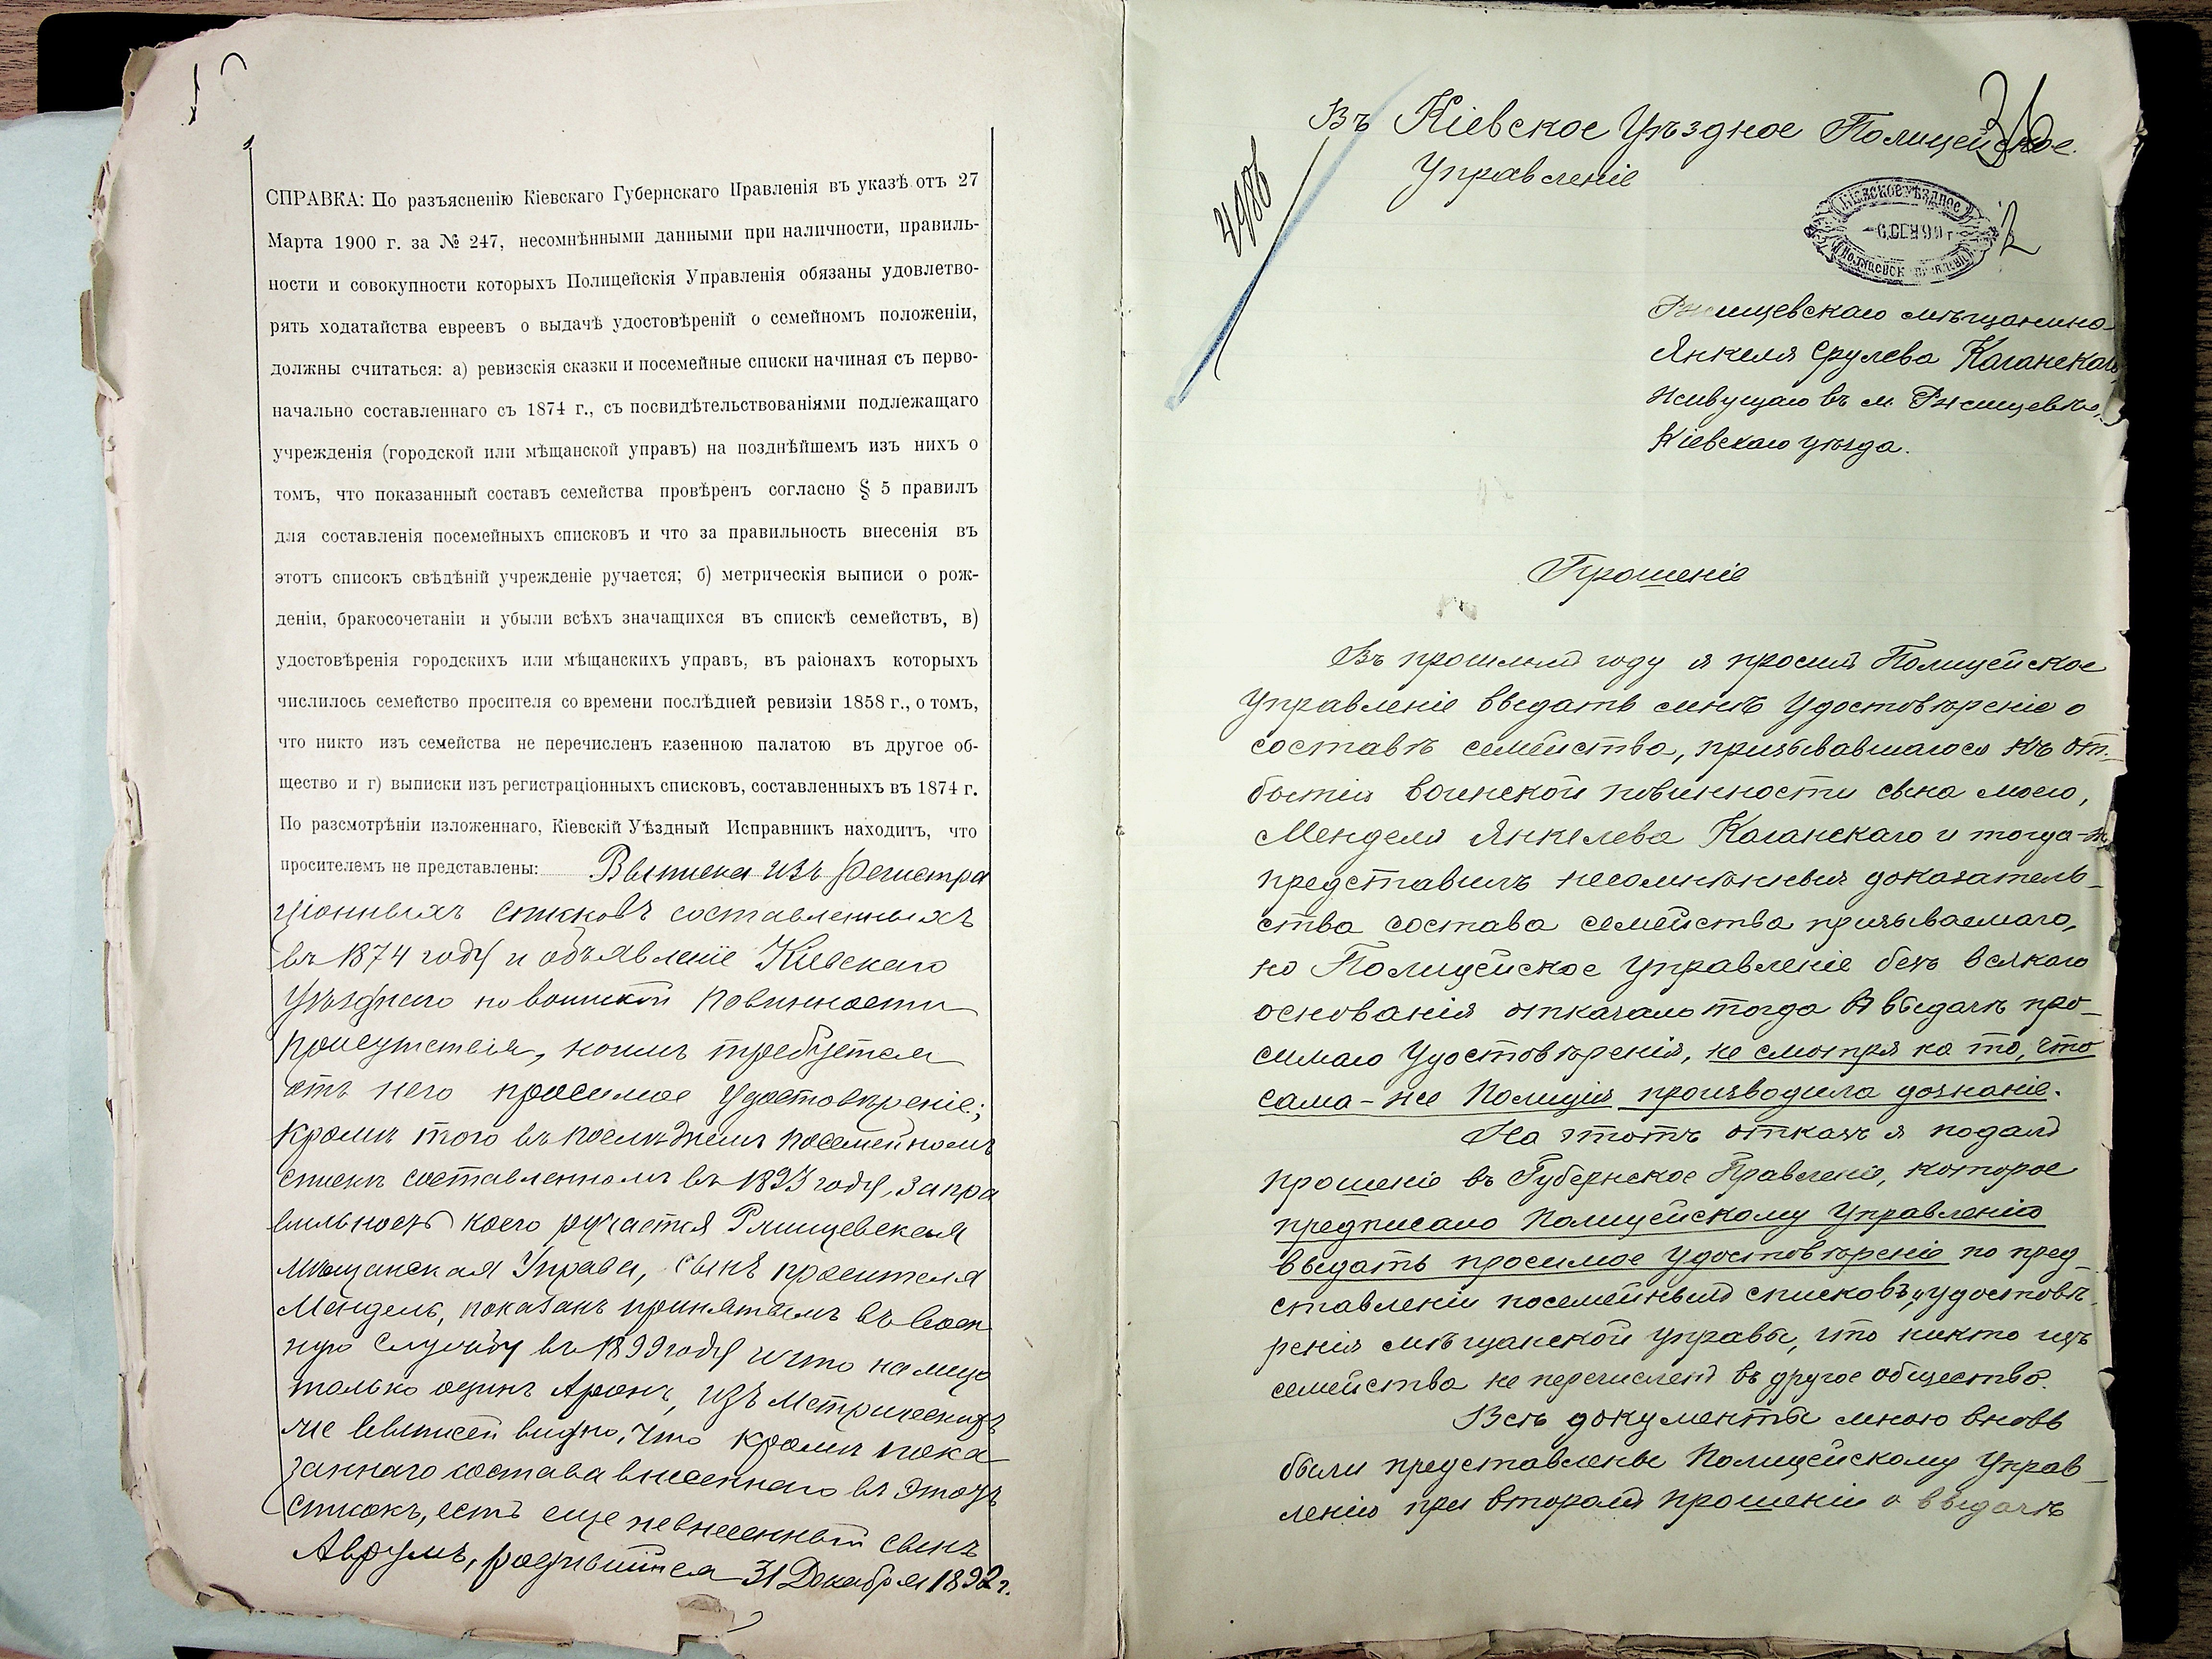 СПРАВКА: По разъясненію Кіевскаго Губернскаго Правленія въ указѣ отъ 27
Марта 1900 г. за № 247, несомнѣнными данными при наличности, правиль-
ности и совокупности которыхъ Полицейскія Управленія обязаны удовлетво-
рять ходатайства евреевъ о выдачѣ удостовѣреній о семейномъ положеніи,
должны считаться: а) ревизскія сказки и посемейные списки начиная съ перво-
начально составленнаго съ 1874 г., съ посвидѣтельствованіями подлежащаго
учрежденія (городской или мѣщанской управъ) на позднѣйшемъ изъ нихъ о
томъ, что показанный составъ семейства провѣренъ согласно § 5 правилъ
для составленія посемейныхъ списковъ и что за правильность внесенія въ
этотъ список свѣдѣній учрежденіе ручается; б) метрическія выписи о рож-
деніи, бракосочетаніи и убыли всѣхъ значащихся въ спискѣ семействъ, в)
удостовѣренія городскихъ или мѣщанскихъ управъ, въ раіонахъ которыхъ
числилось семейство просителя со времени послѣдней ревизіи 1858 г., о томъ,
что никто изъ семейства не перечисленъ казенною палатою въ другое об-
щество и г) выписки изъ регистраціонныхъ списковъ, составленныхъ въ 1874 г.
По разсмотрѣніи изложеннаго, Кіевскій Уѣздный Исправникъ находитъ, что
просителемъ не представлены: Выписка изъ регистра
ціонныхъ списковъ составленныхъ
въ 1874 году и объявленіе Кіевскаго
Уѣзднаго по воинской повинности
присутствія, коимъ требуется
отъ него просимое удостовѣреніе;
кромѣ того въ послѣднемъ посемейномъ
спискѣ составленномъ въ 1893 году, за пра
вильность коего ручается Ржищевская
Мѣщанская Управа, сынъ просителя
Мендель, показанъ принятымъ въ воен
ную службу въ 1899 году и что на лицо
только одинъ Аронъ, изъ метрическихъ
же выписей видно, что кромѣ пока
заннаго состава внесеннаго въ этотъ
списокъ, есть еще невнесенный сынъ
Аврумъ, родившійся 31 Декабря 1892 г.
Въ Кіевское Уѣздное Полицейское
Управленіе
КІЕВСКОЕ УѢЗДНОЕ
Ржищевскаго мѣщанина
Янкеля Срулева Каганскаго
Живущаго въ м. Ржищевѣ,
Кіевскаго уѣзда.
Прошеніе
Въ прошломъ году я просилъ Полицейское
Управленіе выдать мнѣ Удостовѣреніе о
составѣ семейства, призывавшагося къ от-
бытію воинской повинности сына моего,
Менделя Янкелева Каганскаго и тогда-же
представилъ несомнѣнныя доказатель-
ства состава семейства призываемаго,
но Полицейское Управленіе безъ всякаго
основанія отказало тогда въ выдачѣ про-
симаго Удостовѣренія, не смотря на то, что
сама-же Полиція производила дознаніе.
На этотъ отказъ я подалъ
прошеніе въ Губернское Правленіе, которое
предписало Полицейскому Управленію
выдать просимое Удостовѣреніе по пред-
ставленіи посемейныхъ списковъ, и удостовѣ-
ренія мѣщанской управы, что никто изъ
семейства не перечисленъ въ другое общество.
Всѣ документы мною вновь
были представлены Полицейскому Управ-
ленію при второмъ прошеніи о выдачѣ